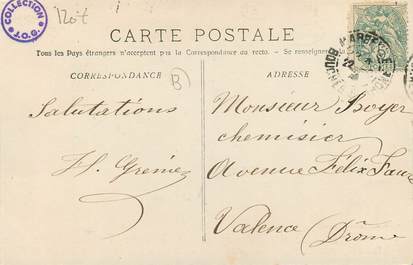 COLLECTION
D.O.T.
CARTE POSTALE
Tous les Pays étrangers n'acceptent pas la Correspondance au recto. — Se renseigner
CORRESPONDANCE
B
ADRESSE
Salutations
Monsieur Boyer
chemisier
Avenue Félix Faure
Valence
(Drôme